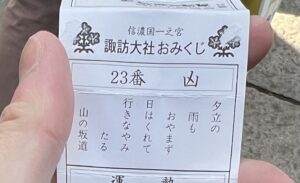 信濃国一之宮
諏訪大社おみくじ
23番 凶
夕立の
雨も
おやまず
日はくれて
行きなやみ
たる
山の坂道
運勢